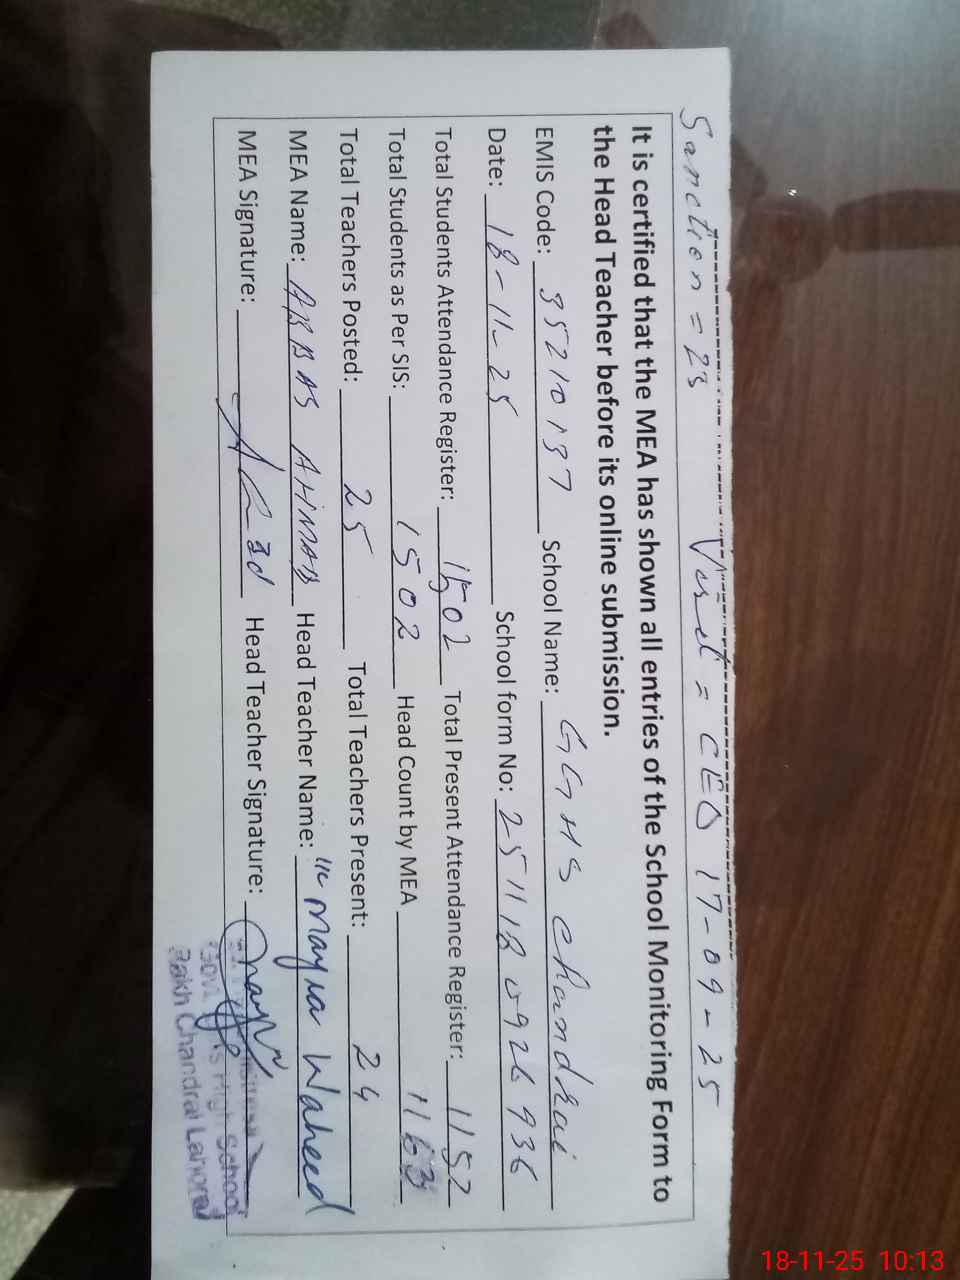 Sanction = 23 Visit = CEO 17-09-25
It is certified that the MEA has shown all entries of the School Monitoring Form to
the Head Teacher before its online submission.
EMIS Code: 35210137 School Name: GGHS Chandrai
Date: 18-11-25 School form No: 2511180926936
Total Students Attendance Register: 1502 Total Present Attendance Register: 1152
Total Students as Per SIS: 1502 Head Count by MEA 1163
Total Teachers Posted: 25 Total Teachers Present: 24
MEA Name: ABBAS AHMAD Head Teacher Name: Mayra Waheed
MEA Signature: Head Teacher Signature:
Govt. Girls High School
Rakh Chandrai Lahore
18-11-25 10:13